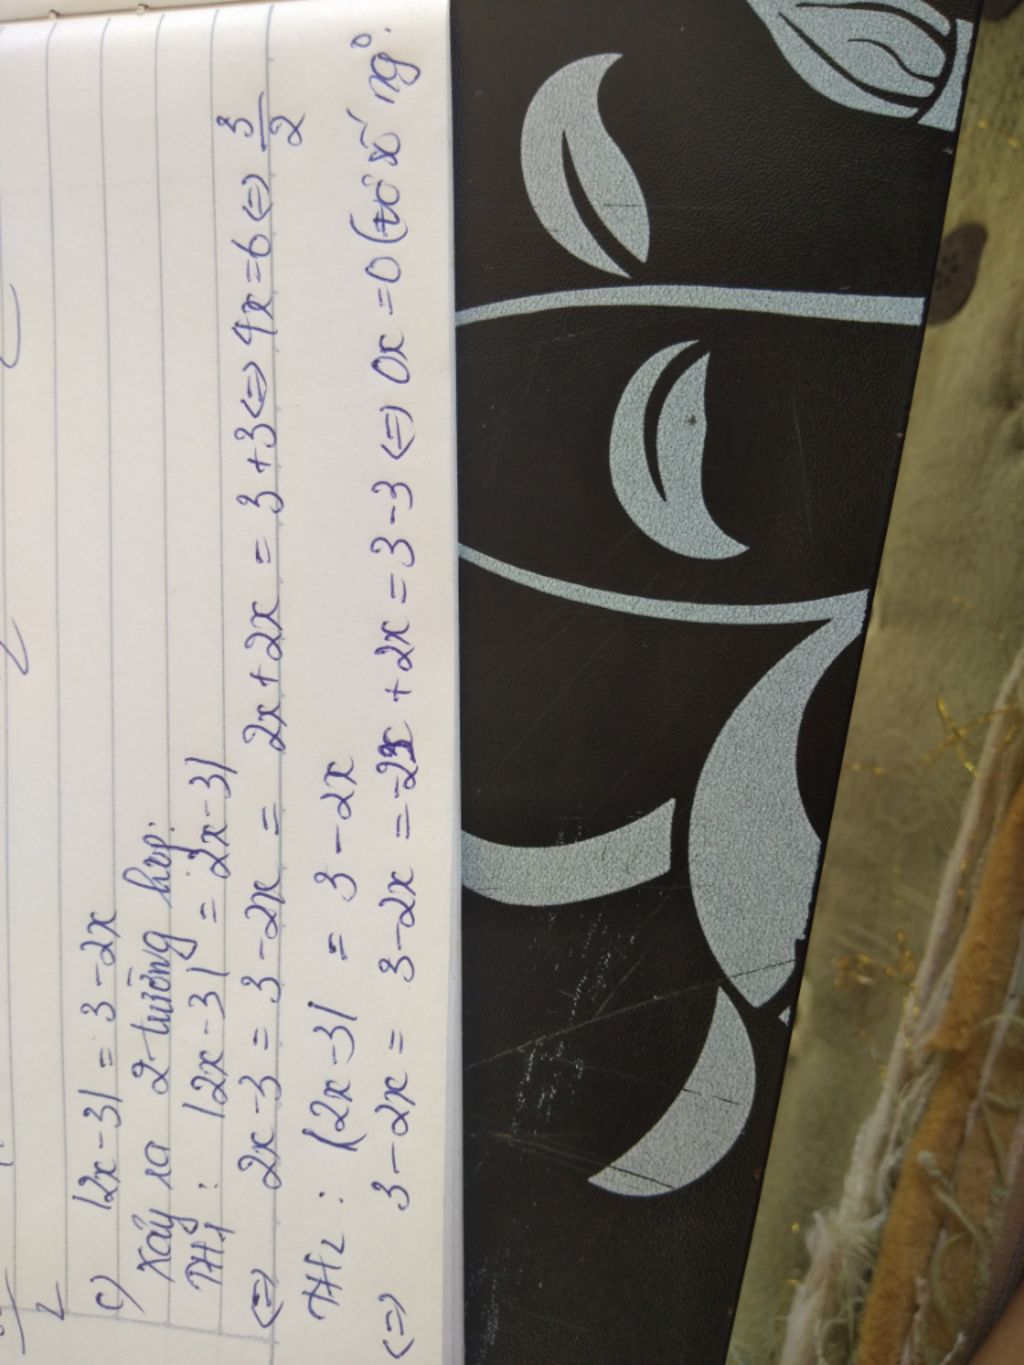 c) |2x-3| = 3-2x
Xảy ra 2 trường hợp:
TH1: |2x-3| = 2x-3|
<=> 2x-3 = 3-2x = 2x+2x = 3+3 <=> 4x=6 <=> 3/2
TH2: |2x-3| = 3-2x
<=> 3-2x = 3-2x = -2x+2x = 3-3 <=> 0x=0 (vô số ngº.